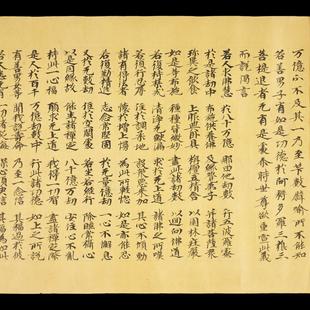 万億分不及其一乃至筭數譬喻所不能知
若善男子有如是功德於阿耨多羅三藐三
菩提退者无有是處尒時世尊欲重宣此義
而說偈言
若人求佛慧 於八十万億 那由他劫數 行五波羅蜜
於是諸劫中 布施供養佛 及緣覺弟子 并諸菩薩衆
珍異之飲食 上服與卧具 栴檀立精舍 以園林莊嚴
如是等布施 種種皆微妙 盡此諸劫數 以迴向佛道
若復持禁戒 清淨无缺漏 求於无上道 諸佛之所歎
若復行忍辱 住於調柔地 設衆惡來加 其心不傾動
諸有得法者 懷於增上慢 爲此所輕惱 如是亦能忍
若復懃精進 志念常堅固 於无量億劫 一心不懈息
又於无數劫 住於空閑處 若坐若經行 除睡常攝心
以是因緣故 能生諸禪定 八十億万劫 安住心不亂
持此一心福 願求无上道 我得一切智 盡諸禪定際
是人於百千 万億劫數中 行此諸功德 如上之所說
有善男女等 聞我說壽命 乃至一念信 其福過於彼
若人悉无有 一切諸疑悔 深心須臾信 其福爲如此